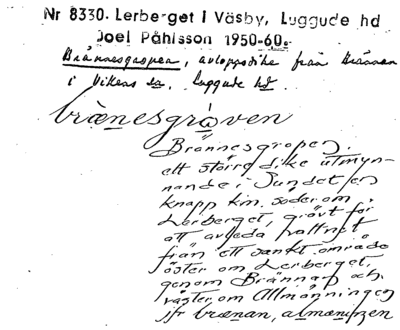 Nr 8330. Lerberget i Väsby, Luggude hd
Joel Påhlsson 1950-60.
Brännesgropen, avloppsdike från Brännan
i Vikens sn, Luggude hd.
brænesgråven
Brännesgropen,
ett större dike utmyn-
nande i Sundet en
knapp km. söder om
Lerberget, grävt för
att avleda vattnet
från ett sankt område
öster om Lerberget,
genom Brännan och
väster om Allmänningen
jfr brænan, almæningen